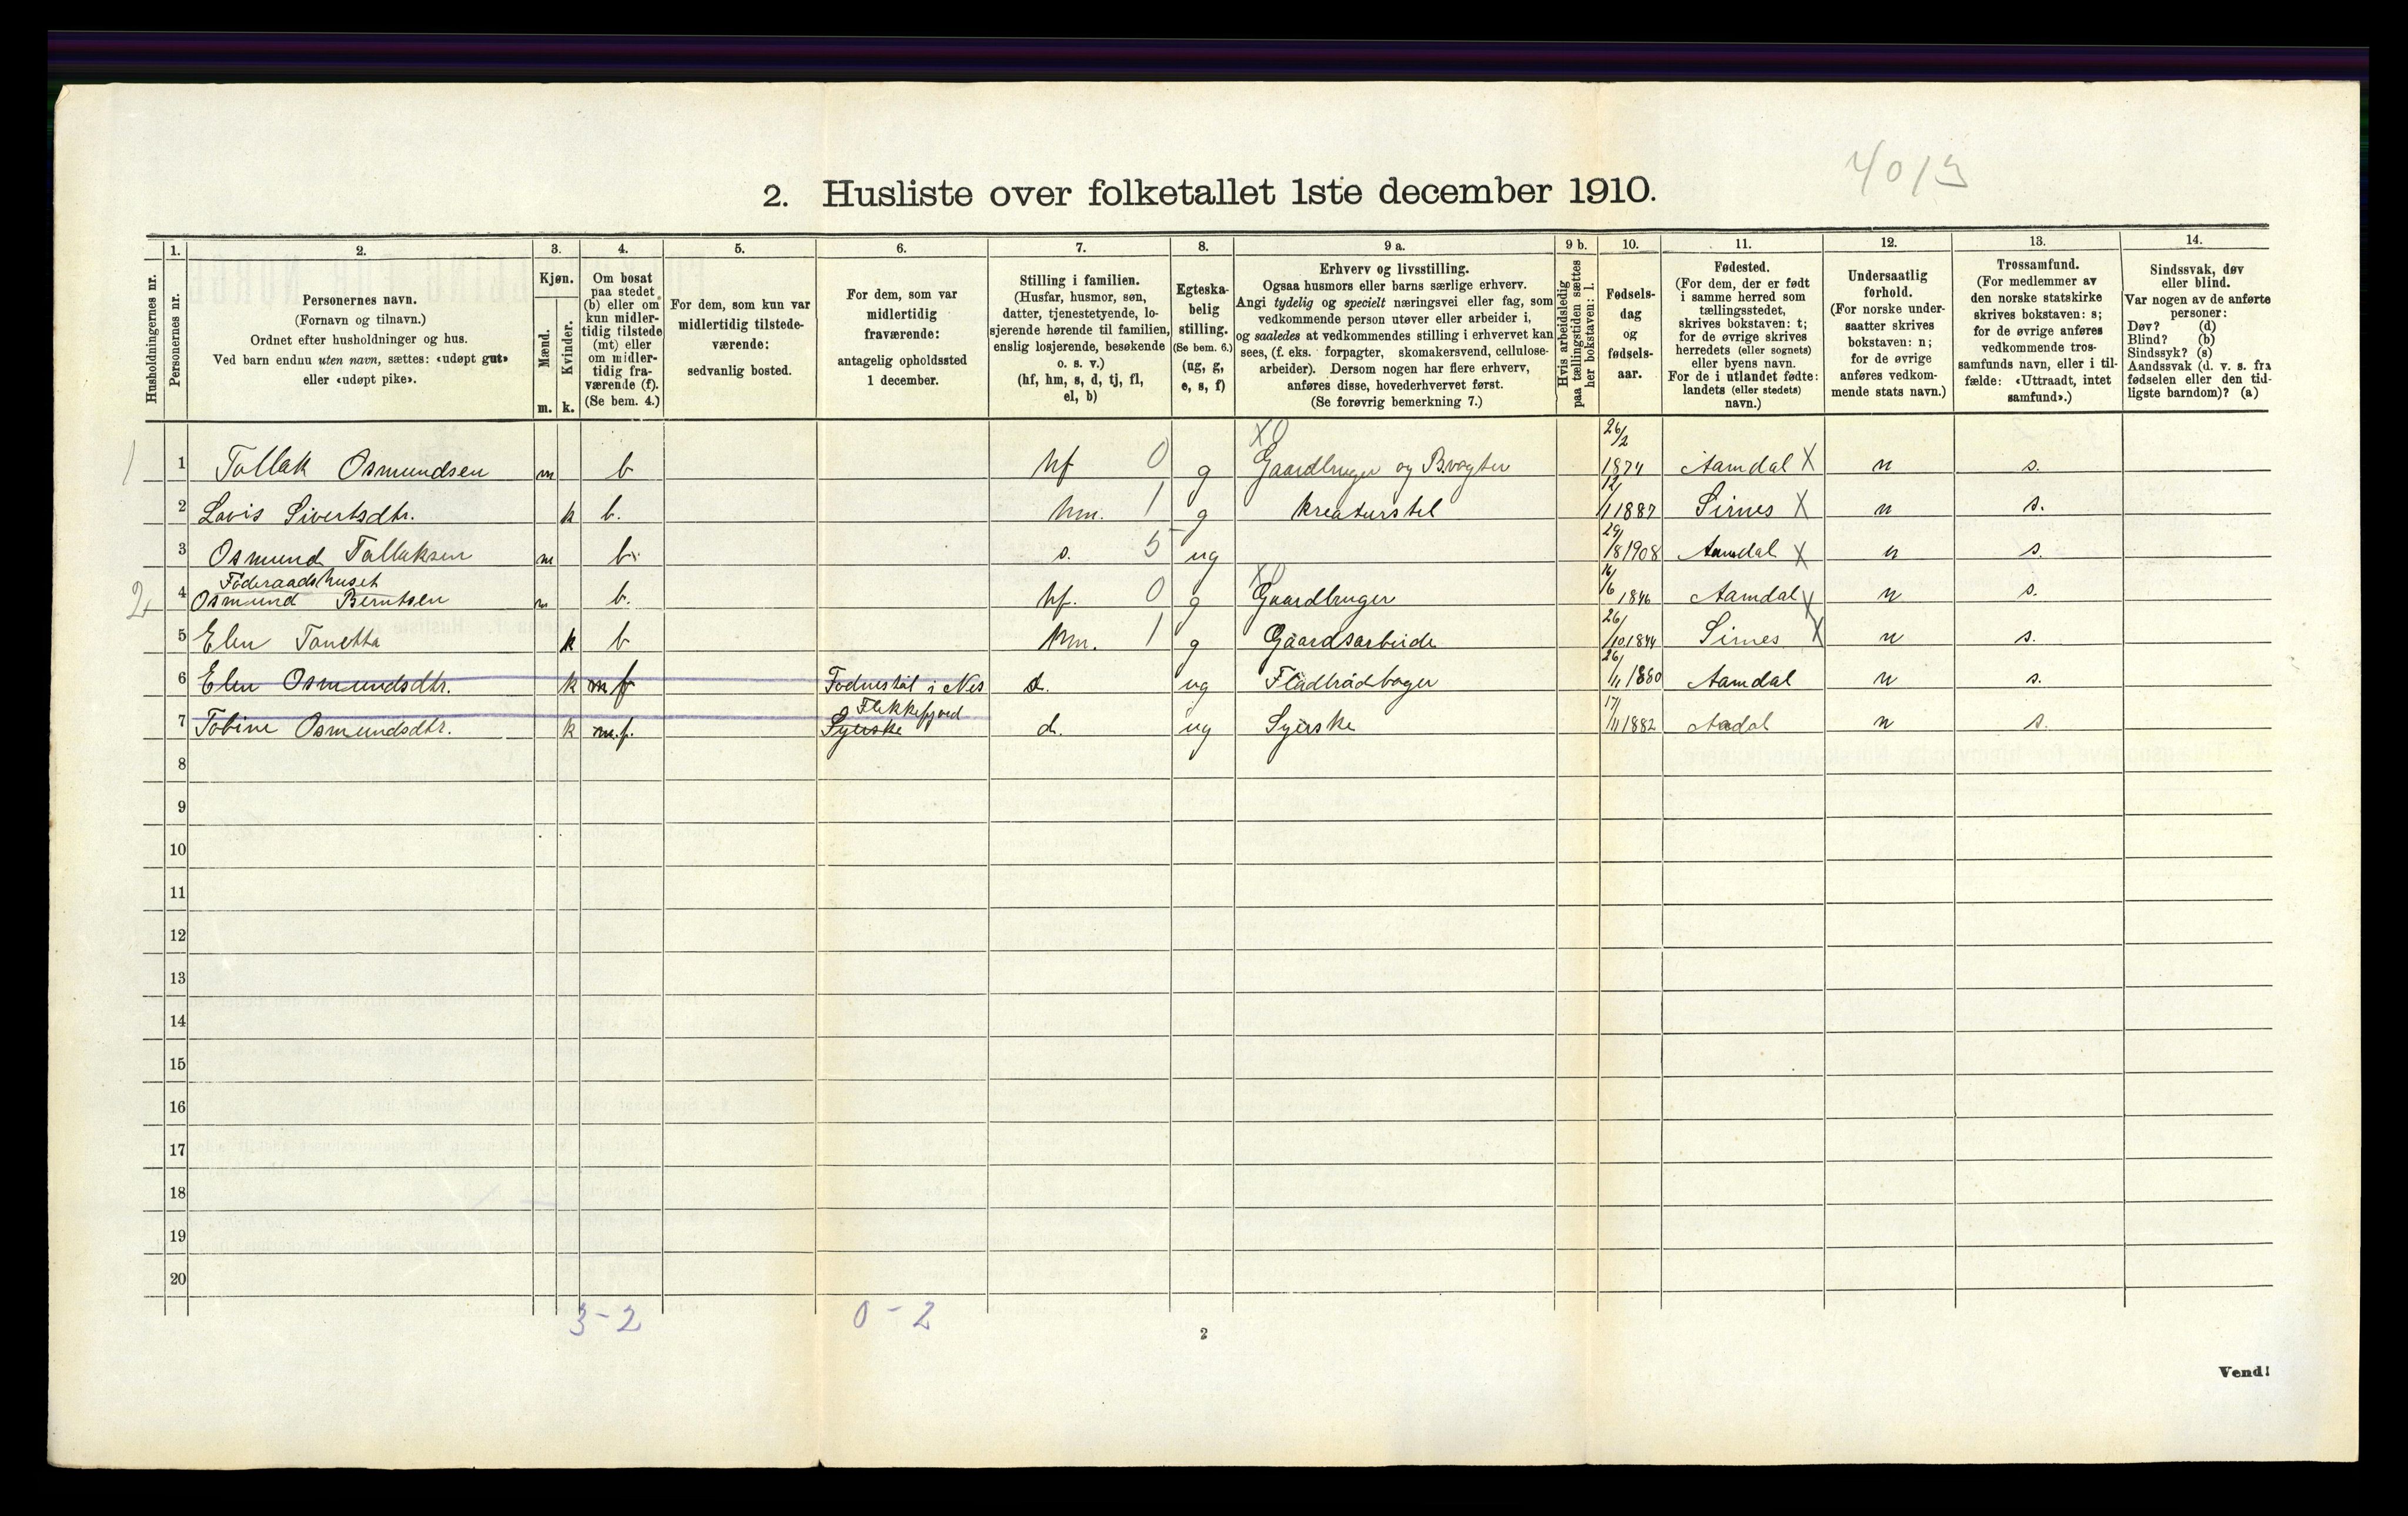 4013
2. Husliste over folketallet 1ste december 1910.
Husholdningernes nr.
1.
Personernes nr.
2.
Personernes navn.
(Fornavn og tilnavn.)
Ordnet efter husholdninger og hus.
Ved barn endnu uten navn, sættes: «udøpt gut»
eller «udøpt pike».
3.
Kjøn.
Mænd.
Kvinder.
m. k.
4.
Om bosat
paa stedet
(b) eller om
kun midler-
tidig tilstede
(mt) eller
om midler-
tidig fra-
værende (f).
(Se bem. 4.)
5.
For dem, som kun var
midlertidig tilstede-
værende:
sedvanlig bosted.
6.
For dem, som var
midlertidig
fraværende:
antagelig opholdssted
1 december.
7.
Stilling i familien.
(Husfar, husmor, søn,
datter, tjenestetyende, lo-
sjerende hørende til familien,
enslig losjerende, besøkende
o. s. v.)
(hf, hm, s, d, tj, fl,
el, b)
8.
Egteska-
belig
stilling.
(Se bem. 6.)
(ug, g,
e, s, f)
9 a.
Erhverv og livsstilling.
Ogsaa husmors eller barns særlige erhverv.
Angi tydelig og specielt næringsvei eller fag, som
vedkommende person utøver eller arbeider i,
og saaledes at vedkommendes stilling i erhvervet kan
sees, (f. eks. forpagter, skomakersvend, cellulose-
arbeider). Dersom nogen har flere erhverv,
anføres disse, hovederhvervet først.
(Se forøvrig bemerkning 7.)
9 b.
Hvis arbeidsledig
paa tællingstiden sættes
her bokstaven: l.
10.
Fødsels-
dag
og
fødsels-
aar.
11.
Fødested.
(For dem, der er født
i samme herred som
tællingsstedet,
skrives bokstaven: t;
for de øvrige skrives
herredets (eller sognets)
eller byens navn.
For de i utlandet fødte:
landets (eller stedets)
navn.)
12.
Undersaatlig
forhold.
(For norske under-
saatter skrives
bokstaven: n;
for de øvrige
anføres vedkom-
mende stats navn.)
13.
Trossamfund.
(For medlemmer av
den norske statskirke
skrives bokstaven: s;
for de øvrige anføres
vedkommende tros-
samfunds navn, eller i til-
fælde: «Uttraadt, intet
samfund».)
14.
Sindssvak, døv
eller blind.
Var nogen av de anførte
personer:
Døv? (d)
Blind? (b)
Sindssyk? (s)
Aandssvak (d. v. s. fra
fødselen eller den tid-
ligste barndom)? (a)
1 1 Tollak Osmundsen m b hf 0 g X0 Gaardbruger og B.vogter 26/2 1874 Aamdal X n s.
2 Lovis Sivertsdtr. k b. hm. 1 g kreaturstel 12/1 1887 Sirnes X n s.
3 Osmund Tollaksen m b. s. 5 ug 29/8 1908 Aamdal X n s.
Föderaadshuset
2 4 Osmund Berntsen m b. hf. 0 g X0 Gaardbruger 16/6 1846 Aamdal X n s.
5 Elen Tonetta k b hm. 1 g Gaardsarbeide 26/10 1844 Sirnes X n s.
6 Elen Osmundsdtr. k m f i Nes d. ug Fladbrödbager 26/11 1880 Aamdal n s.
Flekkefjord
7 Tobine Osmundsdtr. k m.f. Syerske d. ug Syerske 17/11 1882 Aadal n s.
8
9
10
11
12
13
14
15
16
17
18
19
20
3-2 0-2
2
Vend!